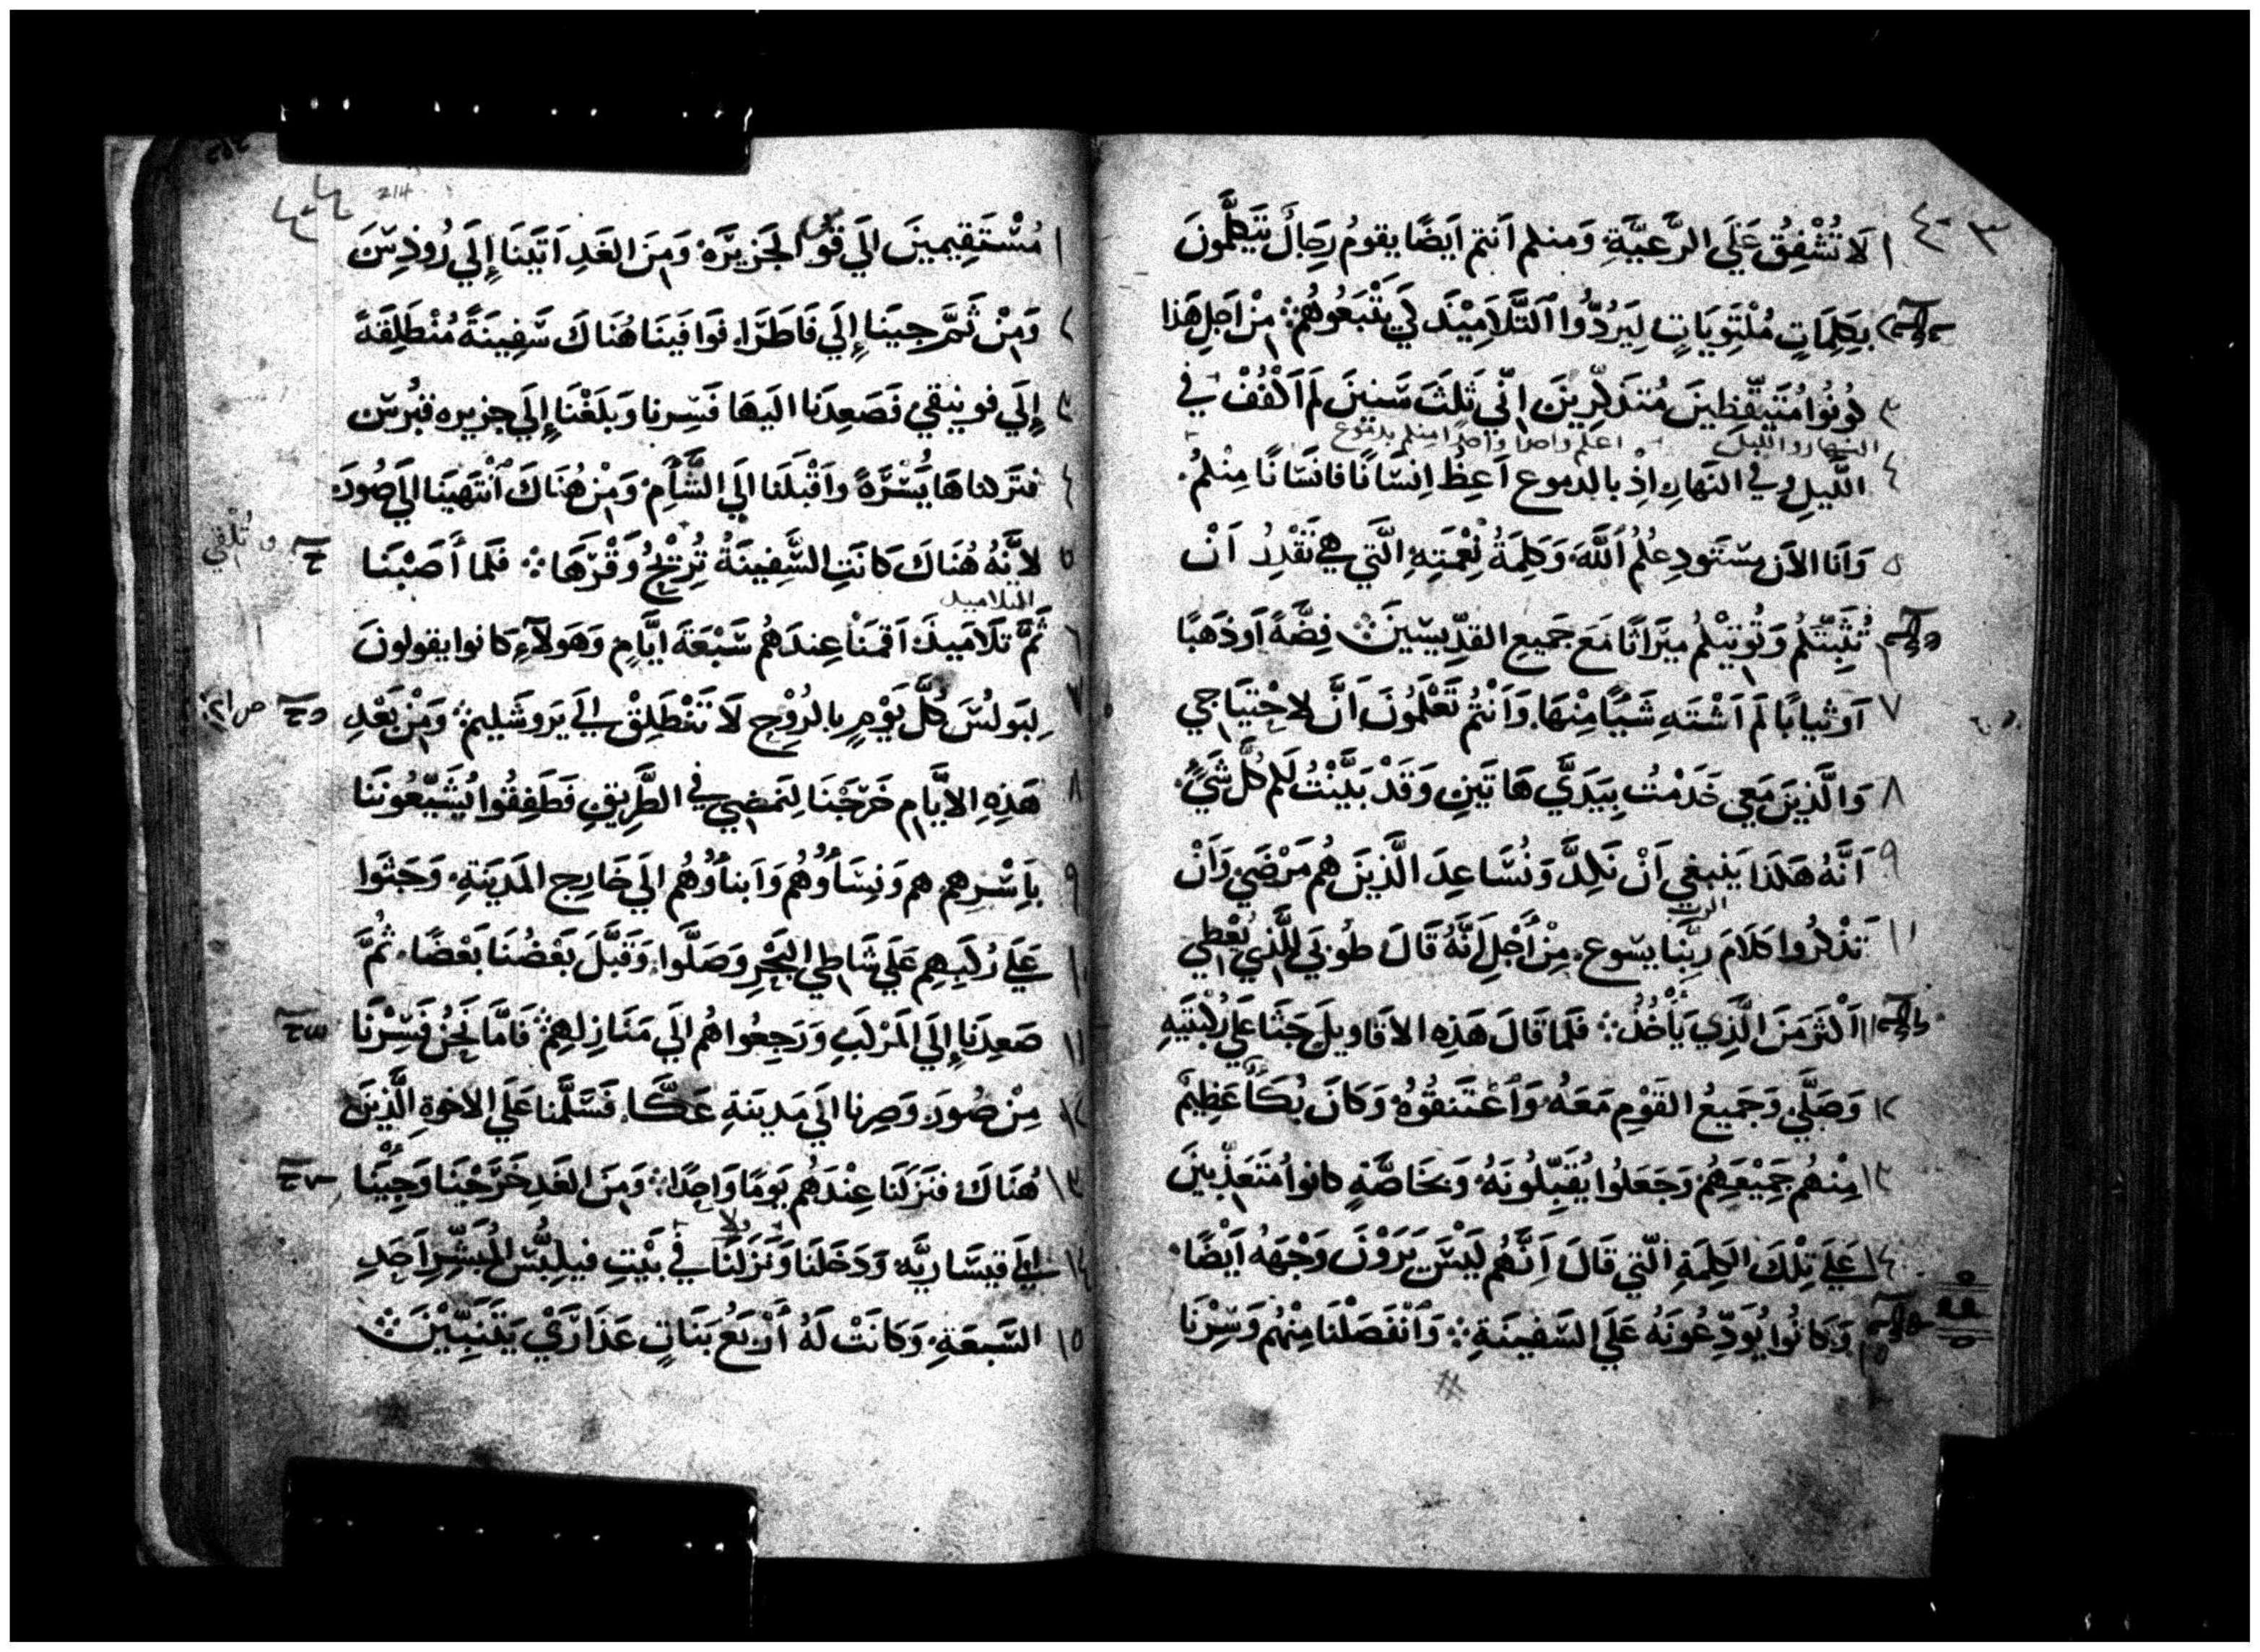 ٤٠٣
١ لَا تُشْفِقُ عَلَي الرَّعيَّةِ. وَمنكم اَنتم ايَضًا يقومُ رِجالٌ يَتَكلَّمونَ
٢ بِكِلِمَاتٍ مُلْتَوِيَاتٍ لِيَرُدُّوا اَلتَّلَامِيْذَ كَي يَتْبَعُوهُمْ ܀ مِنْ اَجلِ هَذا
٣ كُونُوا مُتَيَقِّظِينَ مُتَذَكِّرِينَ اِنّي ثَلثَ سَنينَ لَم اَكْفُفْ في
النهار والليل اعلم واحدا واحدًا منكم بدموع
٤ اللَّيلِ وفي النهَارِ اِذْ بالدموع اَعِظُ اِنسَانًا فانسَانًا مِنْكمُ.
٥ وَاَنا الاَن مستَودِعكُمُ اَللَّهَ وَكَلِمَةُ نِعْمَتِهِ الَّتي هي تَقْدِرُ اَنْ
٦ تُثَبِّتَكُم وَتُوتِيْكُم ميَراثًا مَعَ جَميعِ القدِّيسّينَ ܀ فِضَّةً اَو ذَهَبًا
٧ اَو ثيابًا لَم اَشْتَهِ شَيًا مِنْهَا. وَاَنْتُم تَعْلَمُونَ اَنَّ لاِحْتِيَاجي
٨ وَالَّذينَ مَعي خَدَمْتُ بِيَدَيَّ هَا تَينِ وَقَدْ بَيَّنْتُ لَكم كُلَّ شَيً.
٩ اَنَّهُ هَكَذا يَنبغي اَنْ نَكِدَّ وَنُسَاعِدَ الَّذينَ هُم مَرْضَي وَاَنْ
الرب
١٠ تَذْكرُوا كَلَامَ رَبِّنَا يسوع. مِنْ أَجْلِ اَنَّهُ قَالَ طُوبَي لِلَّذي يُعْطِي
١١ اَكْثَرَ مِنَ الَّذِي يَأْخُذُ ܀ فَلما قَالَ هَذِهِ الاَقَاويلَ جَثَا عَلي رُكْبَتَيهِ
١٢ وَصَلَّي وَجَميعُ القَوْمِ مَعَهُ وَاَعْتَنقُوهُ وَكَانَ بُكَأً عَظِيمٌ
١٣ مِنْهُم جَمِيْعِهِمُ وَجَعَلُوا يُقَبِّلُونَهُ وَبخَاصَّةٍ كانوا مُتَعَذِّبينَ
١٤ عَلَي تِلْكَ الكِلِمَةِ الّتي قَالَ اَنَّهُم لَيْسَ يَرَوْنَ وَجْهَهُ اَيْضًا.
١٥ وَكانُوا يُوَدِّعُونَهُ عَلَي السَّفينَةِ ܀ وَاَنْفَصَلْنَا مِنْهُم وَسِرْنَا
214
١ مُسْتَقِيمينَ الَي قو الجَزِيرَة. وَمِنَ الغَدِ اَتَينَا إِلَي رُوذِسَ
٢ وَمِنْ ثَمَّ جيَنا إِلَي فَاطَرَا. فَوافَينَا هُنَاكَ سَفِينَةً مُنْطَلِقَةً
٣ إِلَي فوينيقي فَصَعِدَنا اليَها فَسِرنا وَبَلَغْنَا إِلَي جزيره قبُرسَ
٤ فَتَركناهَا يُسْرَةً وَاَقْبَلَنا الَي الشَّأم. وَمِنْ هُنَاكَ اَنْتَهَينَا الَي صُورَ
٥ لاَنَّهُ هُنَاكَ كَانَتِ السَّفِينَةُ تُرِيْحُ وَقْرَهَا ܀ فَلَما أَصَبْنَا
وتُلْقي
التلاميد
٦ ثَمَّ تَلَاميذَ اَقَمَنْا عِندَهُم سَبْعَةَ ايَّامٍ وَهَولَآءِ كَانوا يقولونَ
٧ لِبَولُسَ كُلَّ يَوْمٍ بالرُوْحِ لَا تَنْطَلِقْ الَي يَروشَليم ܀ وَمِنْ بَعْدِ
٨ هَذِهِ الاَيَّامِ خَرَجْنَا لِنَمضِي في الطَّرِيقِ فَطَفِقُوا يُشَيّعُونَنا
٩ باَسْرِهِم هم وَنِسَأُوهُم وَاَبناُوهُم الَي خَارِج المَدينَةِ. وَجَثَوا
١٠ عَلي رُكَبِهِم عَلَي شَاطي البَحْرِ وَصَلَّوا. وَقَبَّلَ بَعْضُنَا بَعْضًا. ثُمَّ
١١ صَعِدَنا إِلَي المَرْكَبِ وَرَجِعُوا هُم الَي مَنَازِلهِم ܀ فَامَّا نَحْنُ فَسِرْنَا
١٢ مِنْ صُورَ وَصِرنا الَي مَدينَةِ عَكَّا. فَسَلَّمنا عَلَي الاخوةِ الَّذِينَ
١٣ هُنَاكَ فَنَزَلنَا عِنْدَهُم يَومًا وَاحِدًا ܀ وَمِنَ الغَدِ خَرَجْنَا وَجِيْنَا
١٤ الَي قيسَاريَّه وَدَخَلنَا وَنَزَلنَا في بَيْتِ فيلِبُّسَ المُبَشِّرِ اَحَدِ
١٥ السَّبعَةِ. وَكَانَتْ لَهُ أَرْبَعُ بَنَاتٍ عَذَارَيْ يَتَنَبِّيْنَ ܀